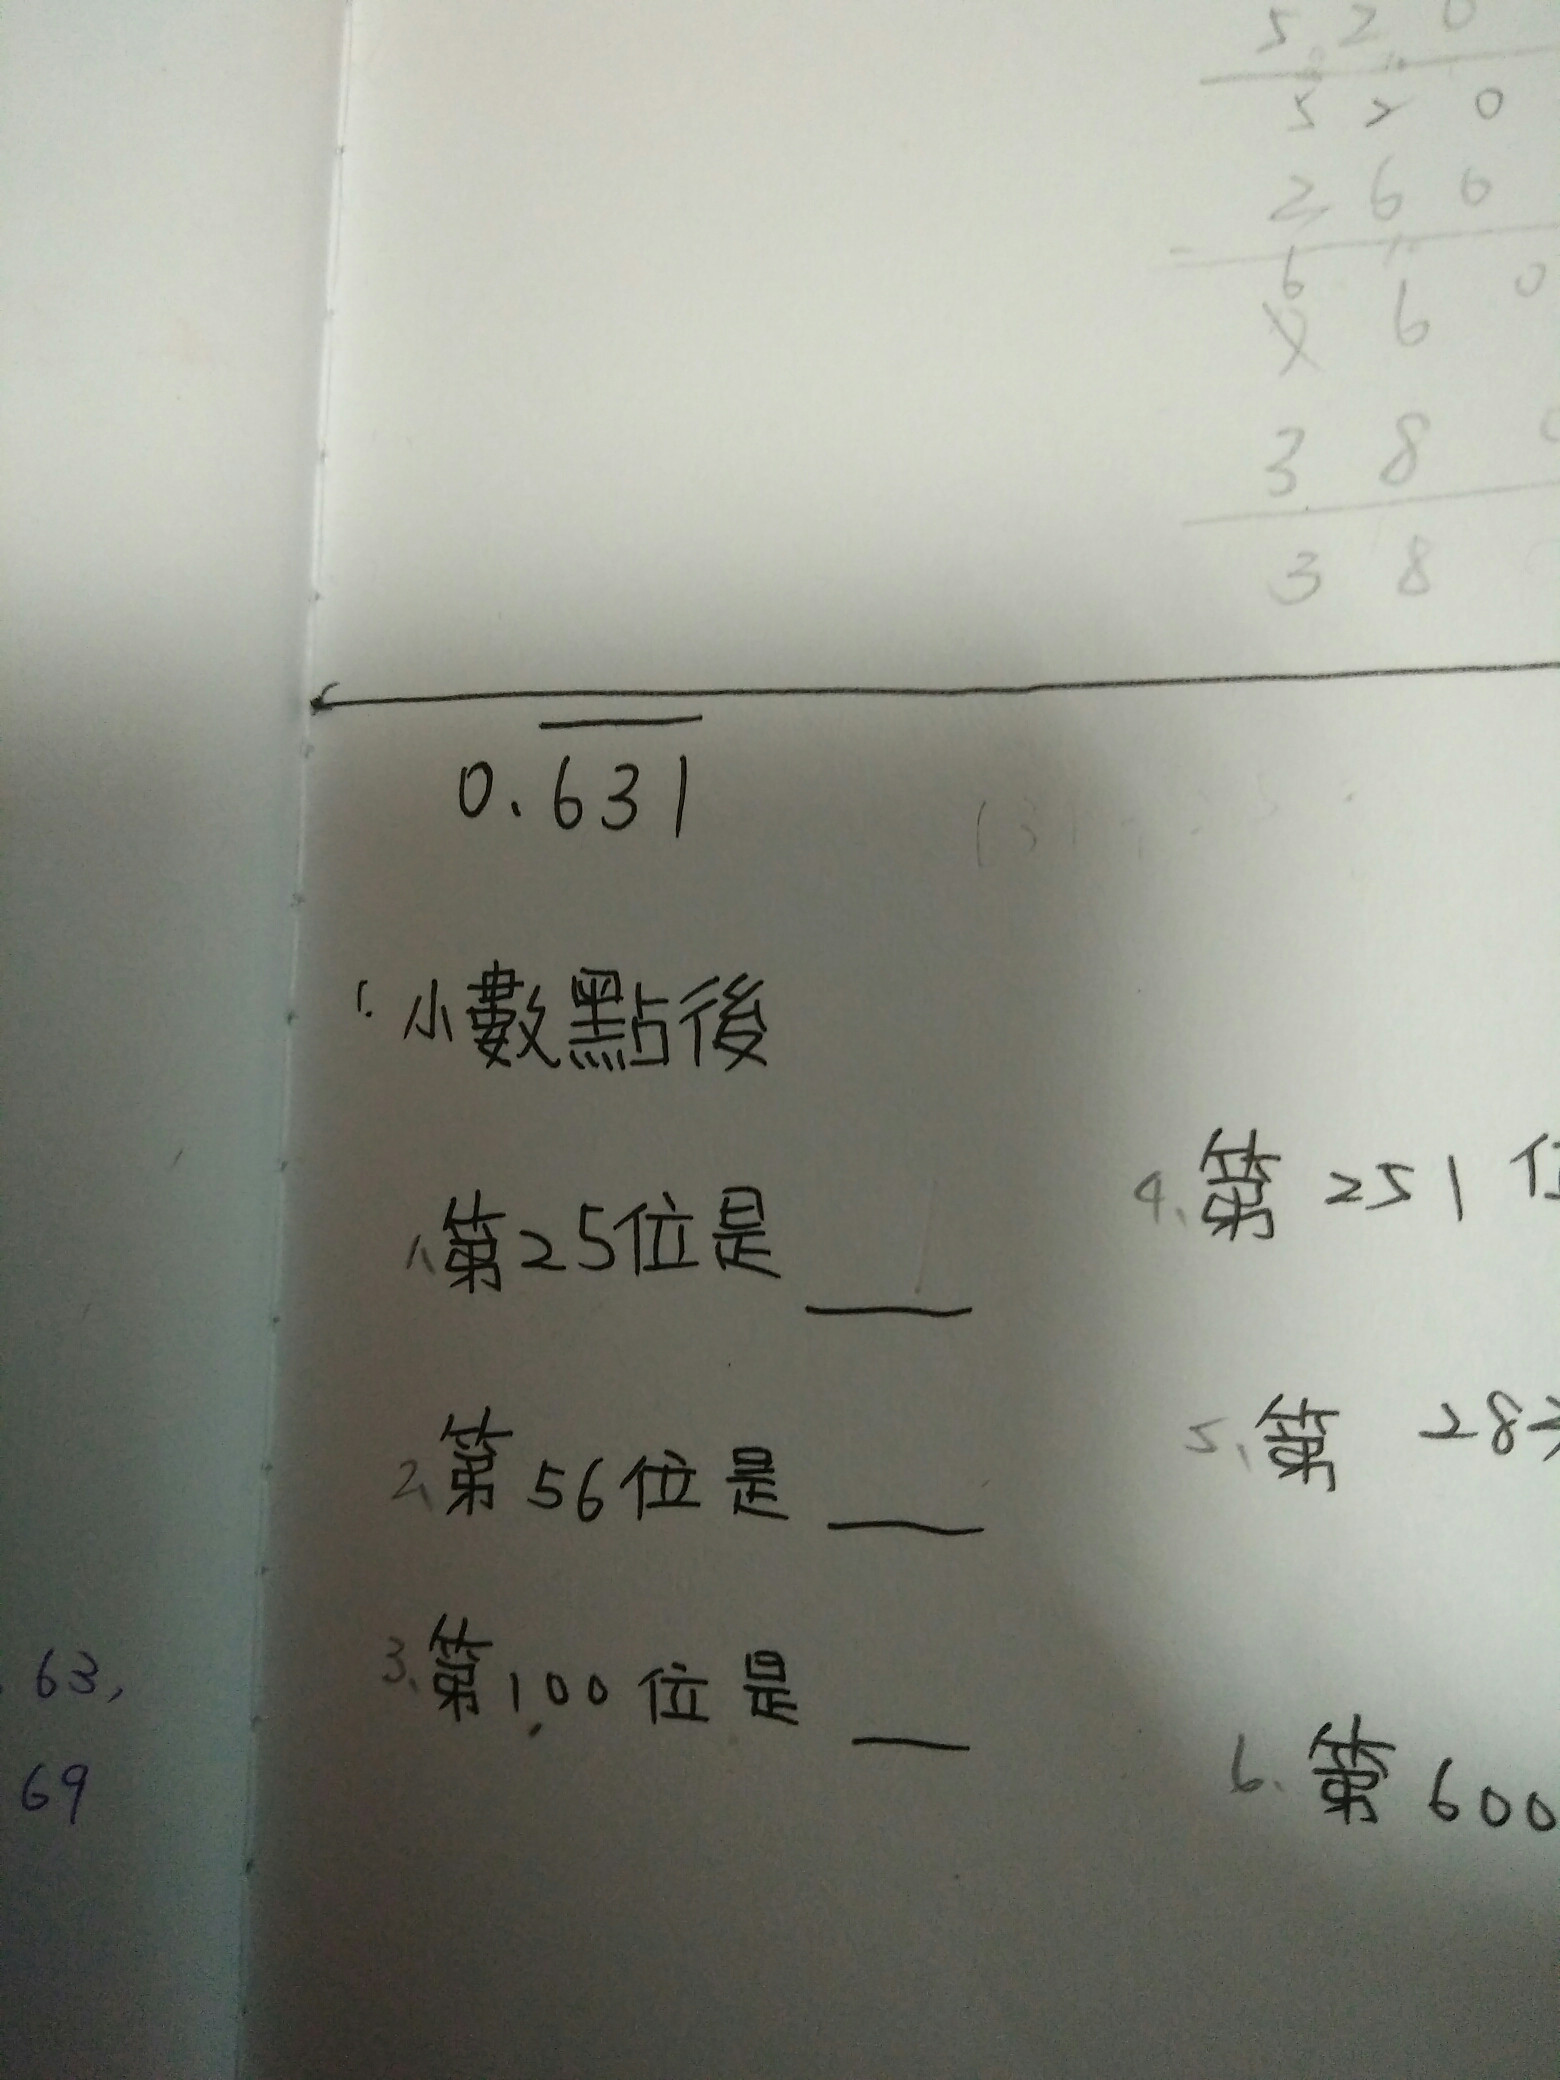 5 2 0
5 2 0
2 6 6
6 6 0
3 8
3 8
0.631
1. 小數點後
1、第25位是
2、第56位是
3、第100位是
4、第251位
5、第28
6、第600
63,
69